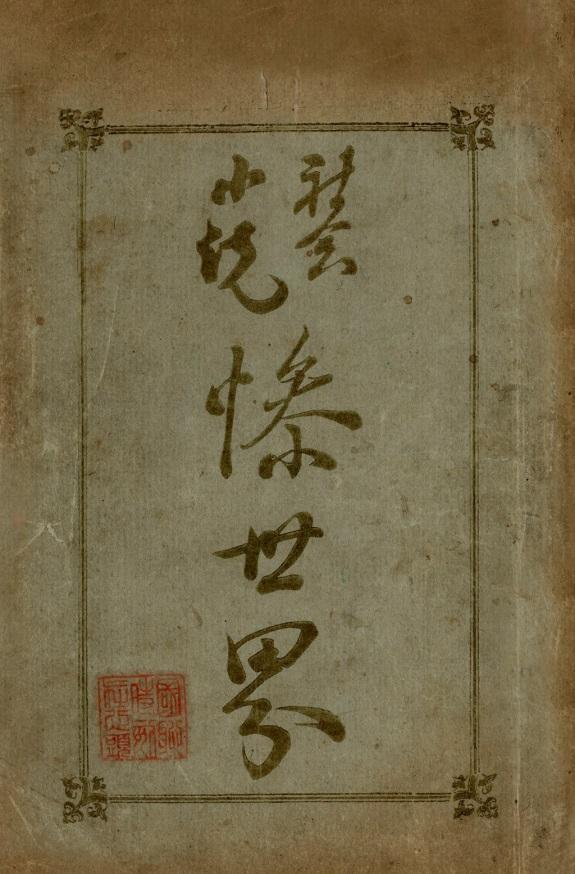 社會
小說
慘世界